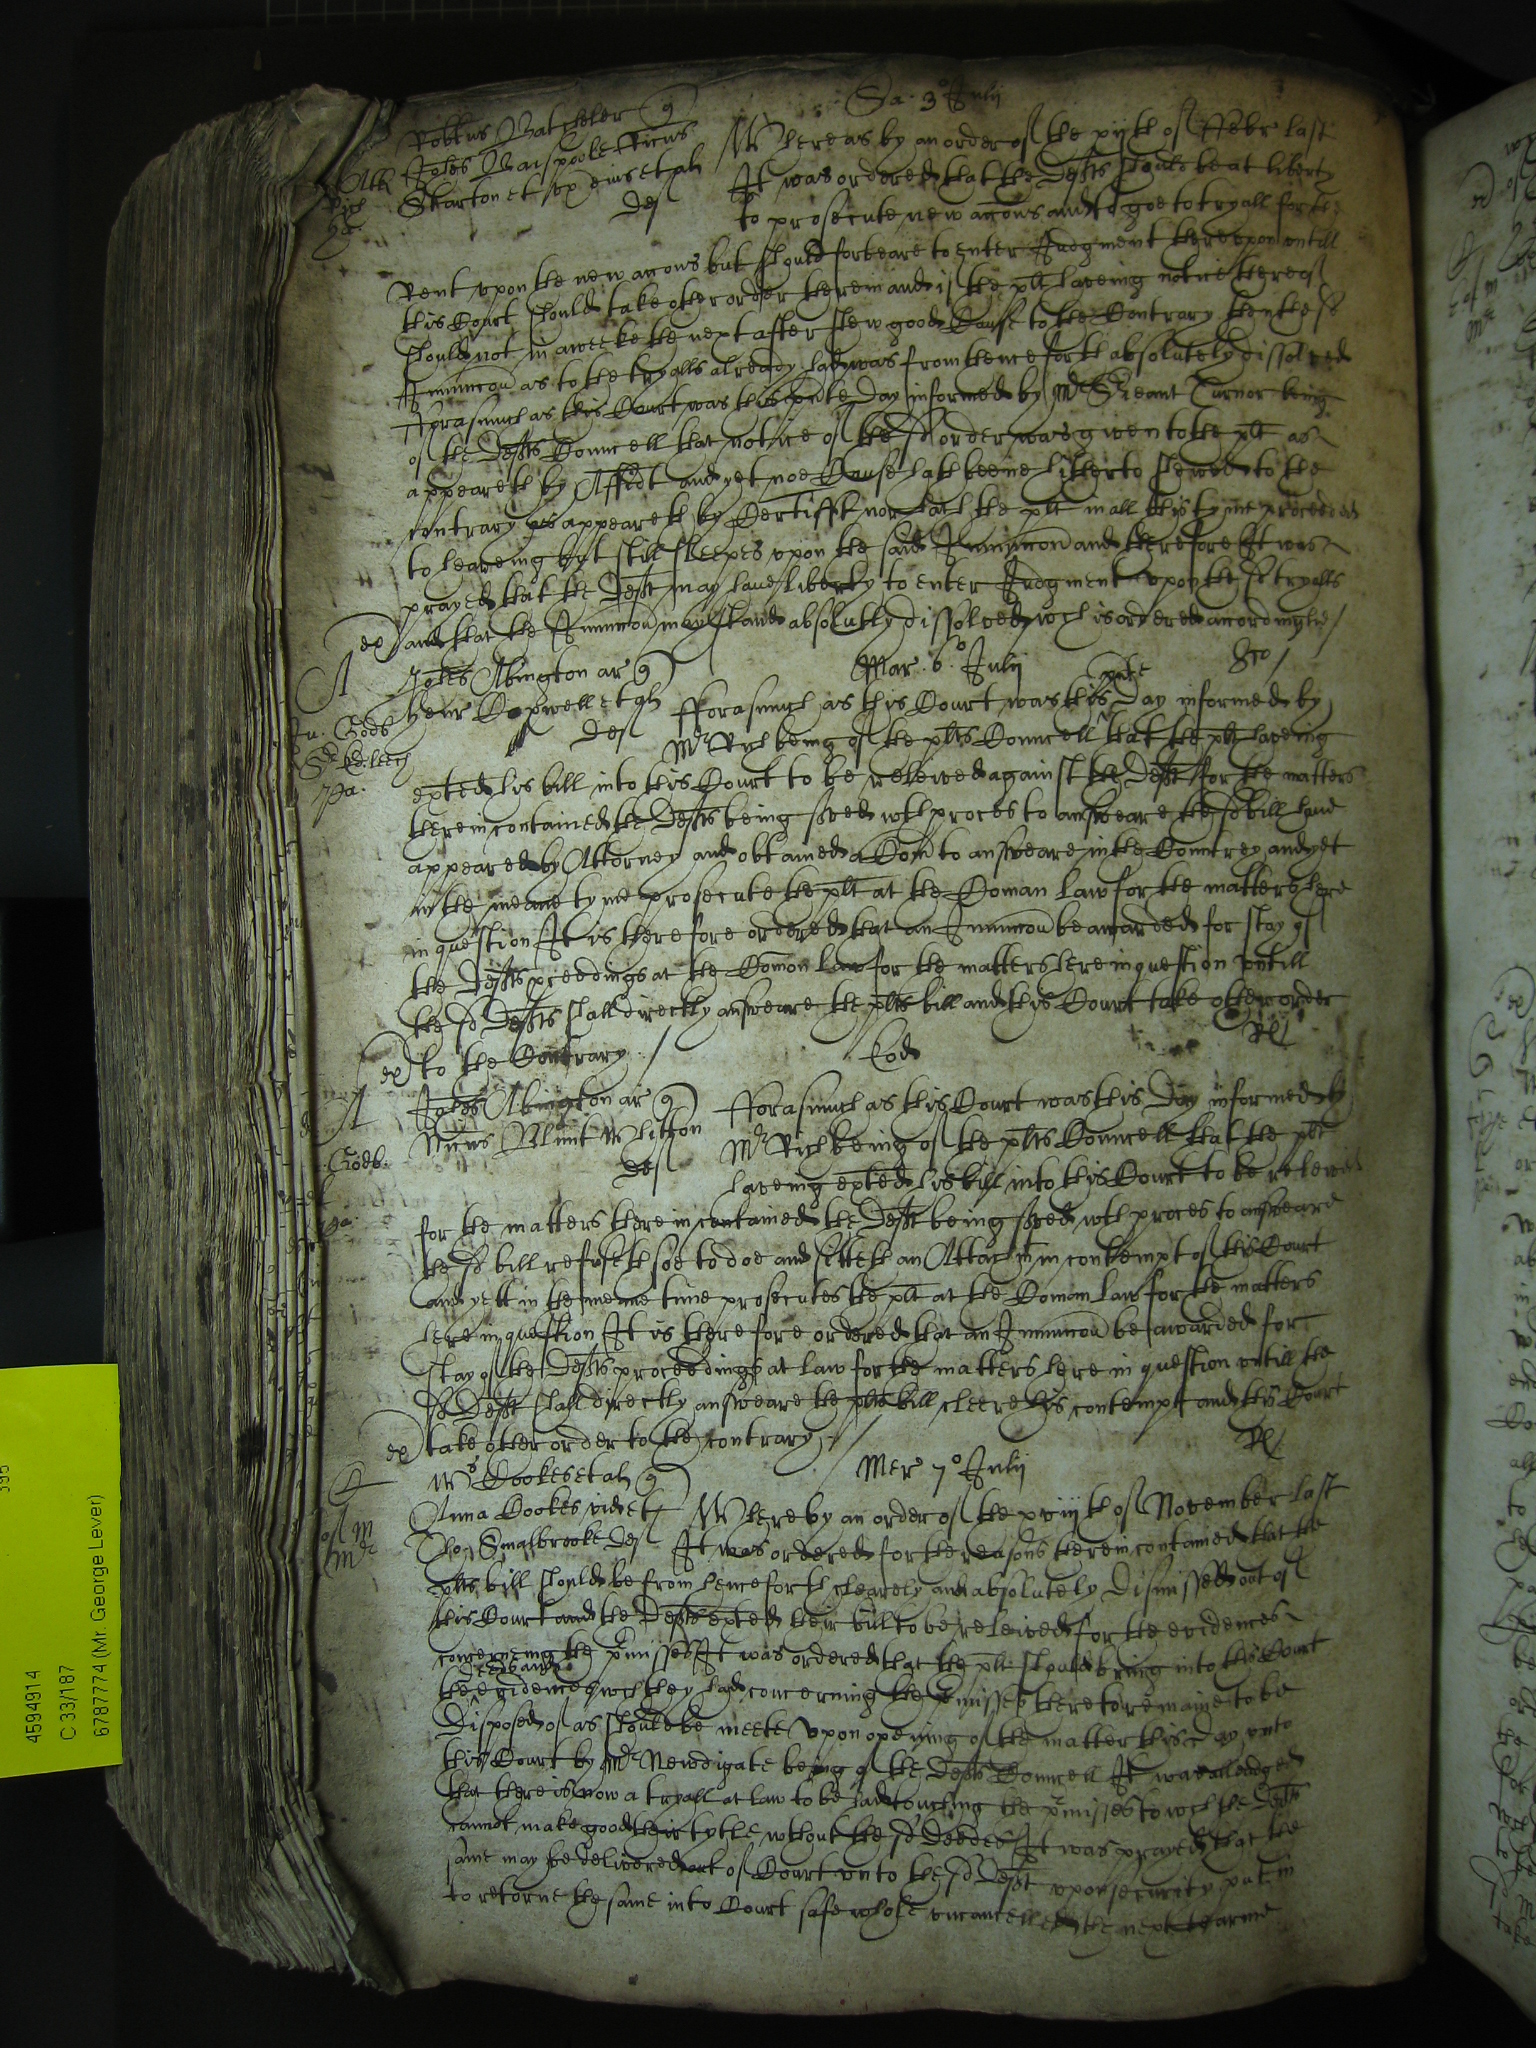 Sa. 3o Julij
Robtus Batcheler q
Johes Barspoole Ricus
Skarton et ux eius et al
def
Whereas by an order of the xijth of Febr last
It was ordered that the Defts should be at liberty
to prosecute new accons and to goe to tryall for the
Rent upon the new accons but should forbeare to enter Judgment thereupon untill
this Court should take other order therein and if the plt haveing notice thereof
should not in a weeke the next after shew good Cause to the Contrary then the sd
Iniunccon as to the tryalls already had was from thenceforth absolutely dissolved
Forasmuch as this Court was this pnte day informed by Mr Sreant Turnor being
of the Defts Councell that notice of the sd order was given to the plt as
appeareth by Affidt and yet noe Cause hath beene hitherto shewed to the
contrary as appeareth by Certifft nor hath the plt in all this tyme proceeded
to heareing but still sleepes upon the said Iniunccon and therefore It was
prayed that the Deft may have liberty to enter Judgment upon the sd tryalls
ex and that the Iniunccon may stand absolutly dissolved wch is ordered accordingly /
A
Johes Abington ar q
Mar. 6o Julij
henr Copwell et al
def
fforasmuch as this Court was this pnte Day informed by
Mr Rich being of the plts Councell that the plt haveing
exted his bill into this Court to be releived against the Deft for the matters
therein contained the Defts being served wth proces to answeare the sd bill have
appeared by Attorney and obtained a Com to answeare in the Countrey and yet
in the meane tyme prosecute the plt at the Coman Law for the matters here
in question It is therefore ordered that an Iniunccon be awarded for stay of
the Defts pceedings at the Comon Law for the matters here in question untill
the sd Defts shall directly answeare the plts bill and this Court take other order
ex to the Contrary /
Rl
Eod
A
Johes Abington ar q
Blunt
def
fforasmuch as this Court was this Day informed by
Mr Rich being of the plts Councell that the plt
Godb.
haveing exted his bill into this Court to be releived
for the matters therein contained the Deft being served wth proces to answeare
the sd bill refuseth soe to doe and sitteth an Attachmt in contempt of this Court
and yett in the meane time prosecutes the plt at the Coman Law for the matters
here in question It is therefore ordered that an Iniunccon be awarded for
stay of the Defts proceedings at law for the matters here in question untill the
sd Deft shall directly answeare the plts bill cleere his contempt and this Court
ex take other order to the contrary /
Rl
Mer 7o Julij
Wm Cookes et al q
Anna Cookes vid et
Tho Smalbrooke def
Where by an order of the xviijth of November last
It was ordered for the reasons therein contained that the
plts bill should be from henceforth clearely and absolutely Dismissed out of
this Court and the Defts exted their bill to be releived for the evidences
concerneing the pmisses It was ordered that the plt should bring into this Court
deeds and
the evidences wch they had concerning the pmisses there to remaine to be
Disposed of as should be meete Upon opening of the matter this Day unto
this Court by Mr Newdigate being of the Defts Councell It was alleadged
that there is now a tryall at law to be had touching the pmisses to wch the Defts
cannot make good their tytle wthout the sd Deedes It was prayed that the
same may be delivered out of Court unto the sd Deft upon security put in
to retorne the same into Court safe whole uncancelled the next tearme
4594914
C 33/187
6787774 (Mr. George Lever)